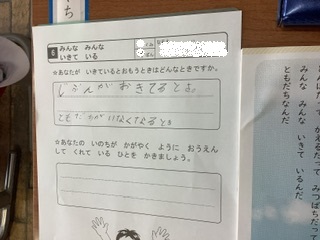 ち
6 みんな みんな
いきて いる
☆あなたが いきているとおもうときはどんなときですか。
じぶんが おきてるとき。
ともだちが いなくなるとき
☆あなたの いのちが かがやく ように おうえん
して くれて いる ひとを かきましょう。
かえるだって みつばちだって
みんな みんな いきて いるんだ
ともだちなんだ